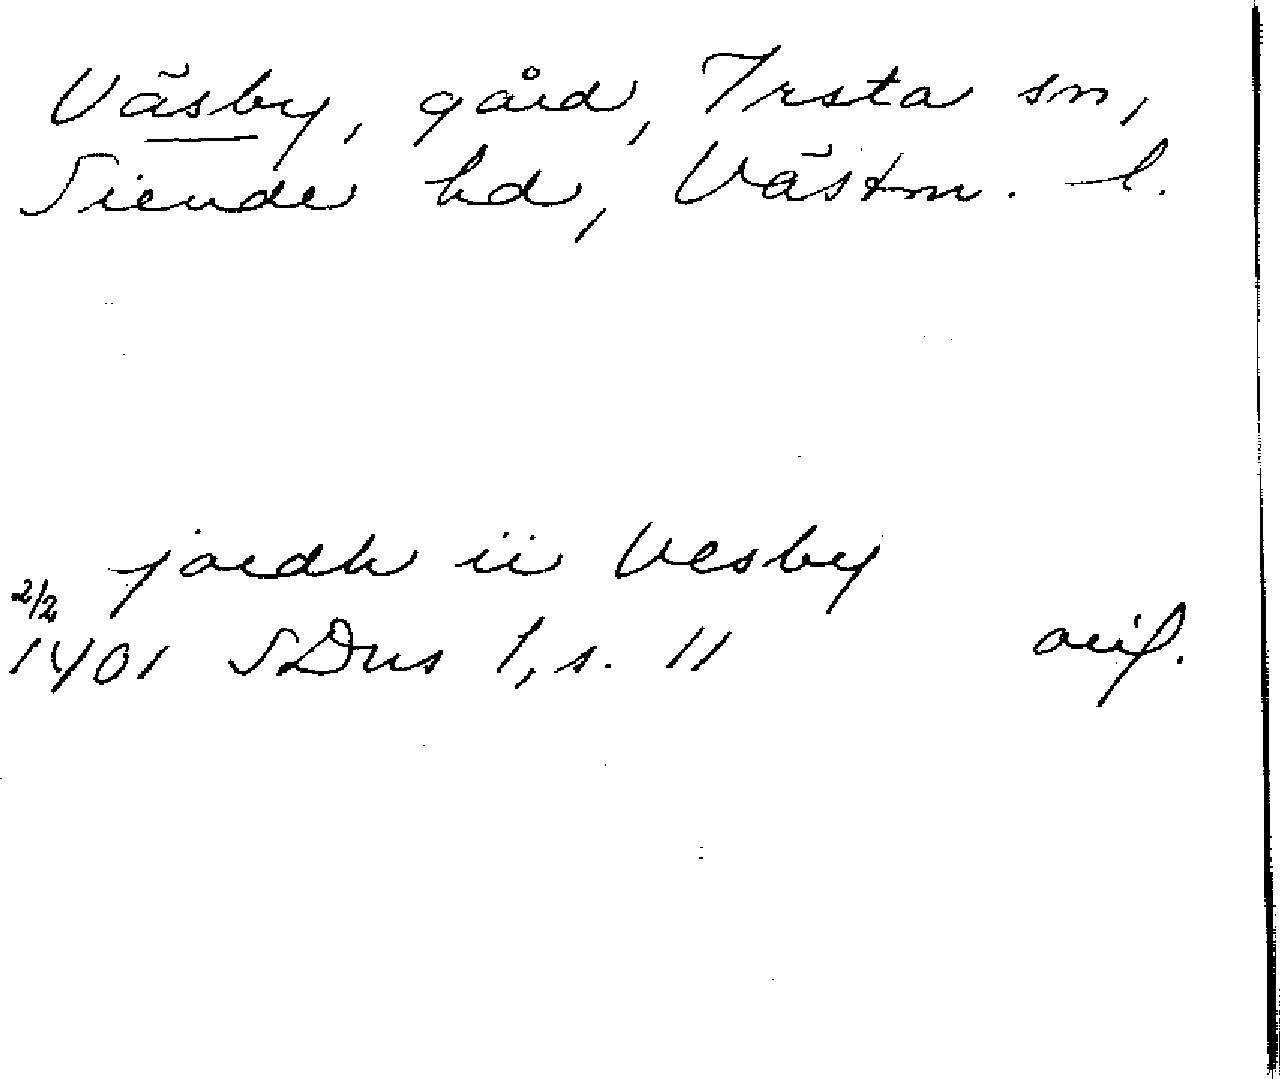 Väsby, gård, Irsta sn,
Siende hd, Västm. l.
jordh ii Vesby
2/2
1401 SDns 1, s. 11 orig.